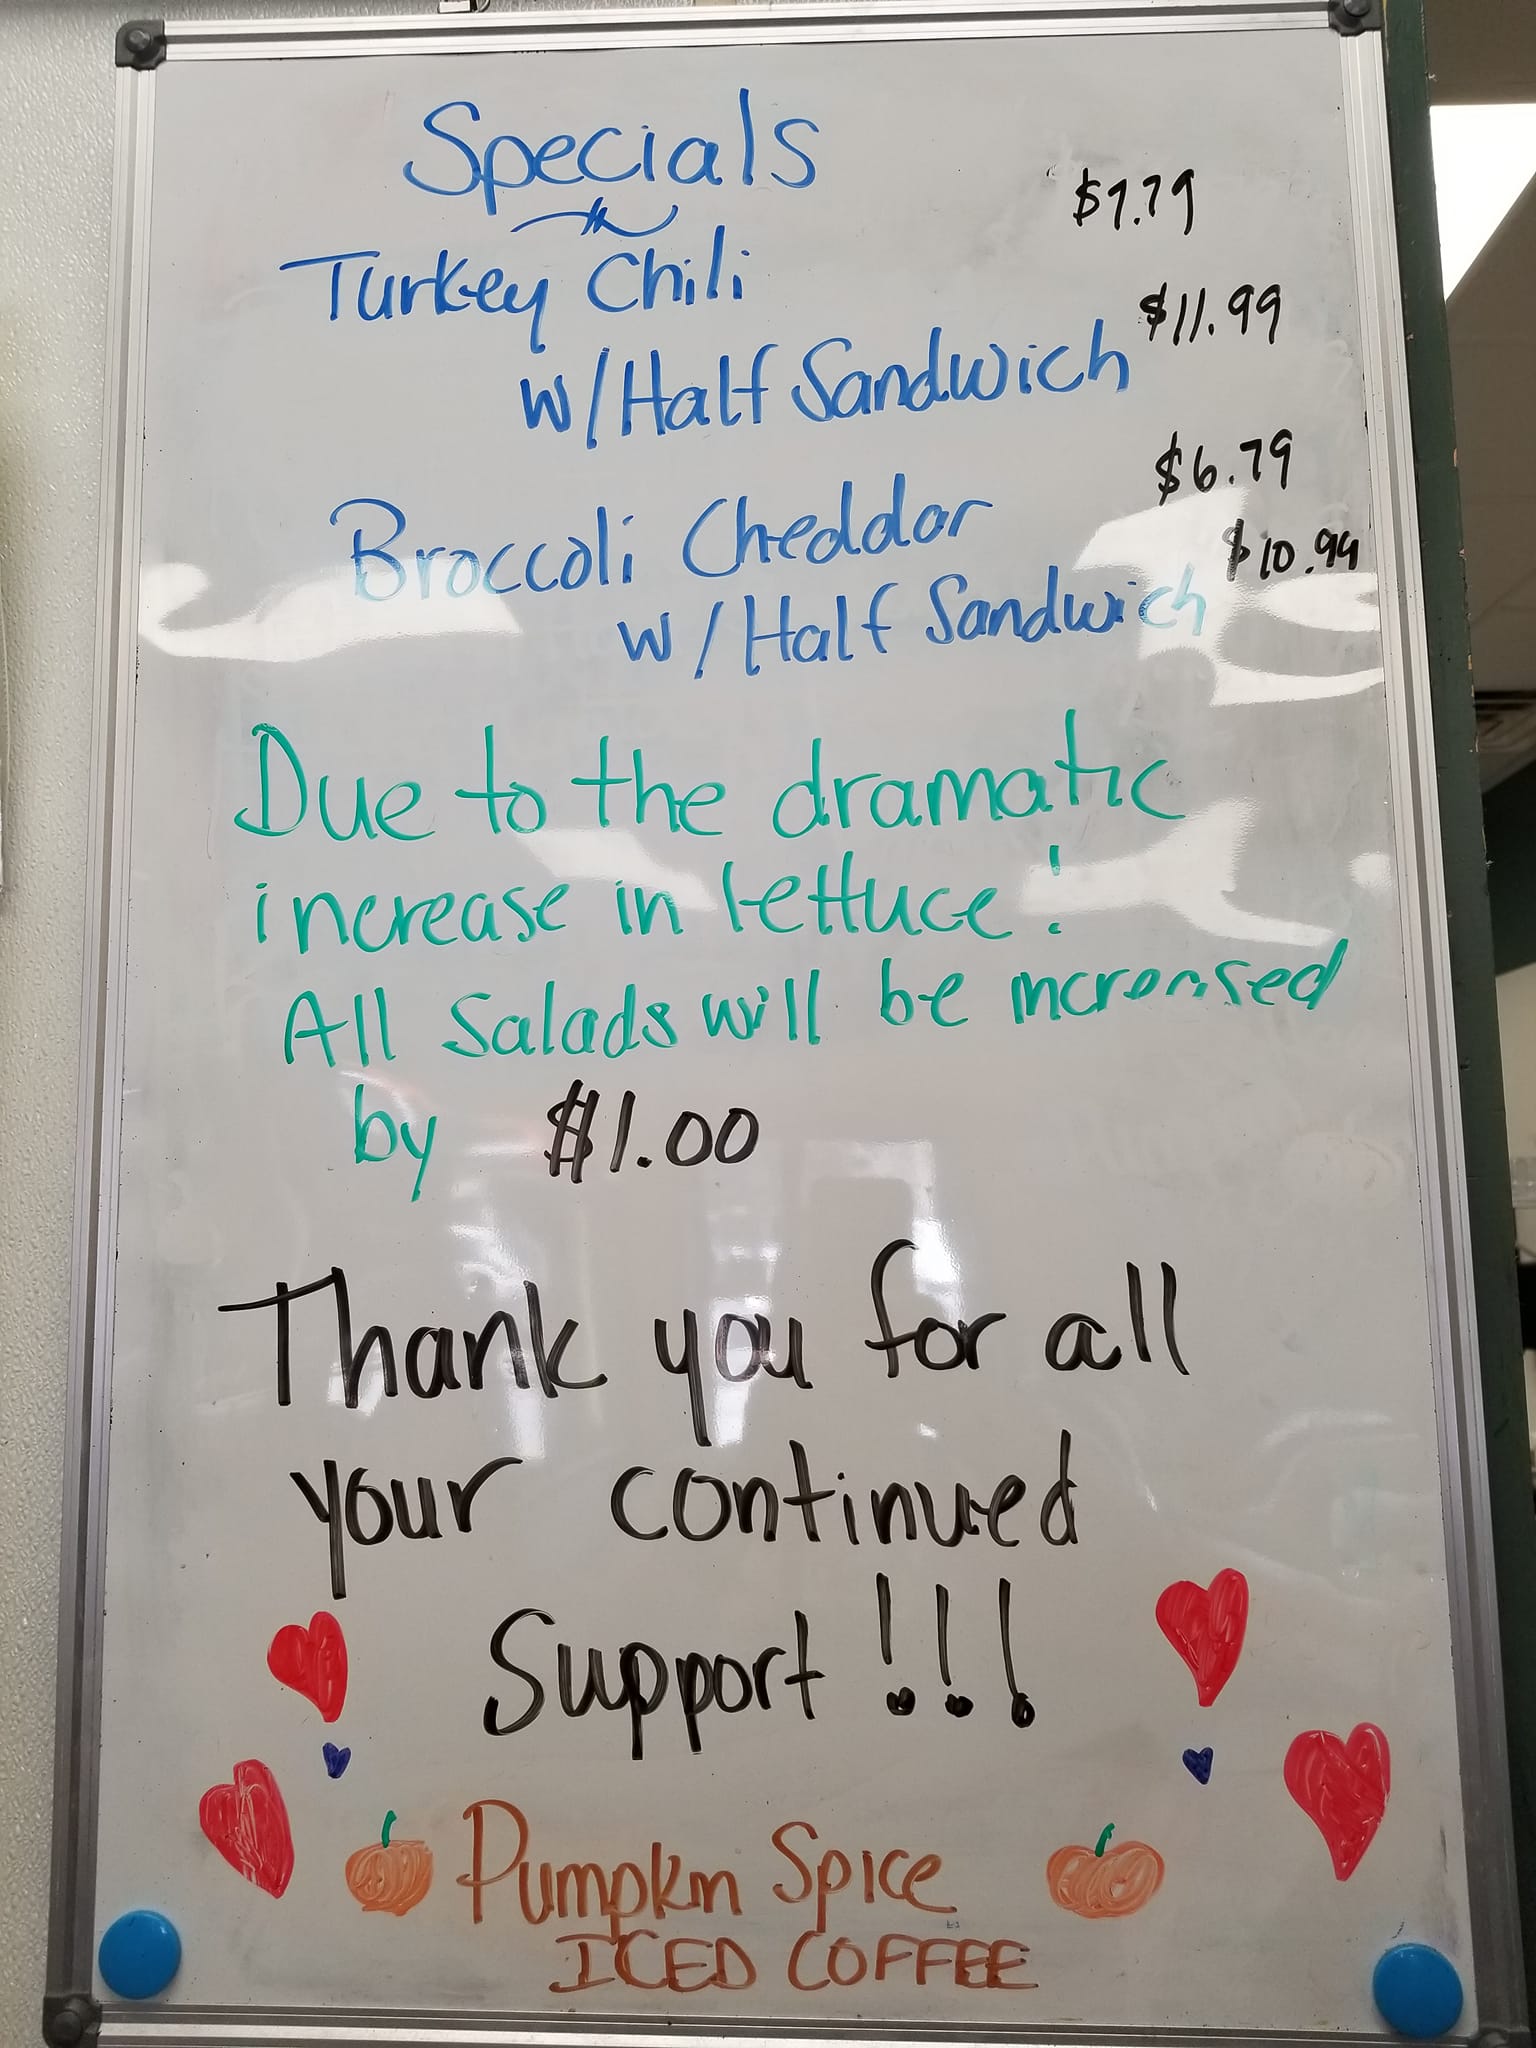 Specials
Turkey Chili $7.79
w/Half Sandwich $11.99
Broccoli Cheddar $6.79
w/Half Sandwich $10.99
Due to the dramatic
increase in lettuce!
All Salads will be increased
by $1.00
Thank you for all
your continued
Support!!!
Pumpkin Spice
ICED COFFEE